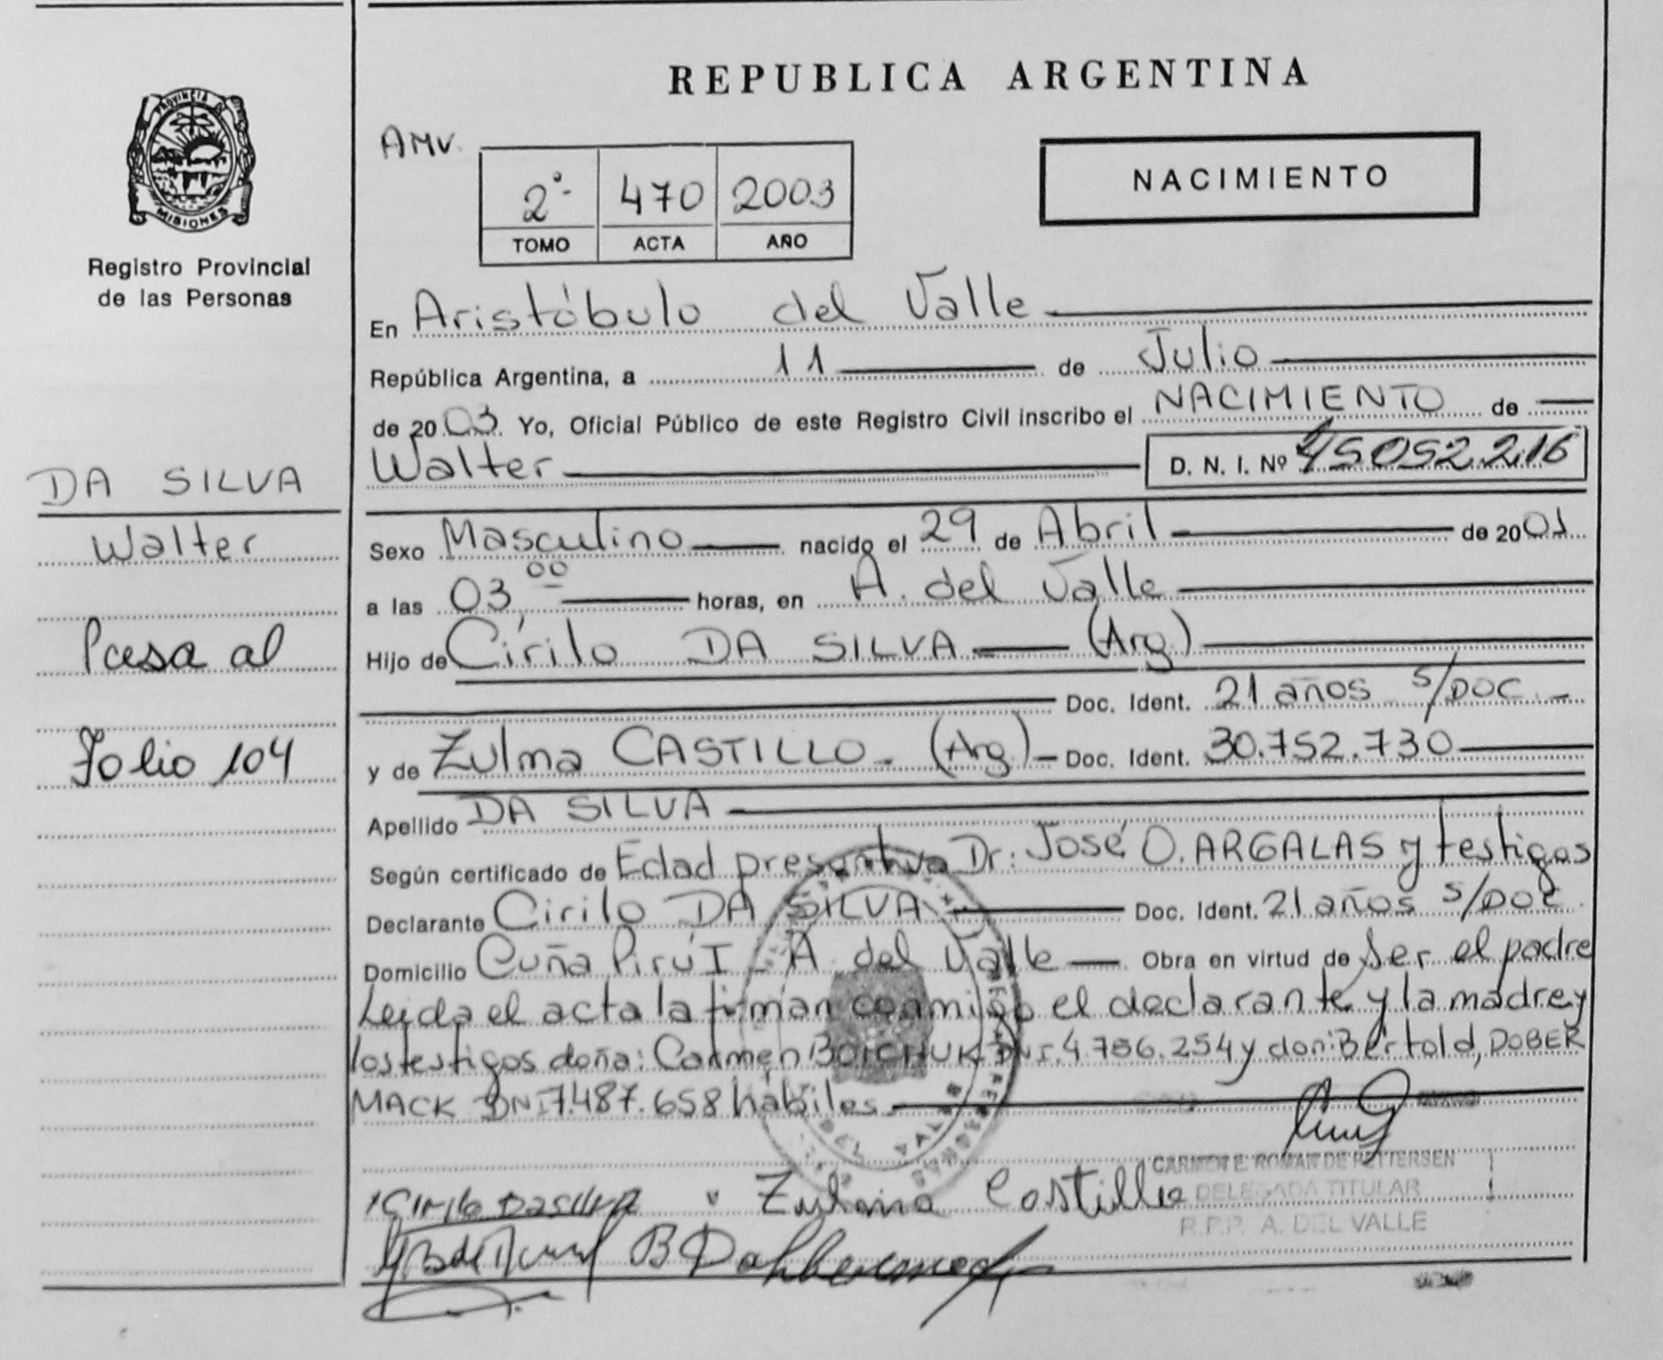 REPUBLICA ARGENTINA
PROVINCIA D
MISIONES
Registro Provincial
de las Personas
AMV.
2º- 470 2003
TOMO ACTA AÑO
NACIMIENTO
En Aristóbulo del Valle
República Argentina, a 11 de Julio
de 2003. Yo, Oficial Público de este Registro Civil inscribo el NACIMIENTO de
Walter D. N. I. Nº 45052.216
DA SILVA
Walter
Pasa al
Folio 104
Sexo Masculino nacido el 29 de Abril de 2001
a las 03,00 horas, en A. del Valle
Hijo de Cirilo DA SILVA (Arg)
Doc. Ident. 21 años s/DOC.
y de Zulma CASTILLO. (Arg) Doc. Ident. 30.752.730
Apellido DA SILVA
Según certificado de Edad presuntiva Dr: José O. ARGALAS y testigos
Declarante Cirilo DA SILVA Doc. Ident. 21 años s/DOC.
Domicilio Cuña Pirú I - A del Valle Obra en virtud de Ser el padre
Leida el acta la firman conmigo el declarante y la madre y
los testigos doña: Carmen BOICHUK DNI. 4.786.254 y don: Bertold, DOBER
MACK DNI 7.487.658 hábiles
CARMEN E. ROMAN DE PETTERSEN
DELEGADA TITULAR
R.P.P. A. DEL VALLE
Cirilo Dasilva Zulma Castillo